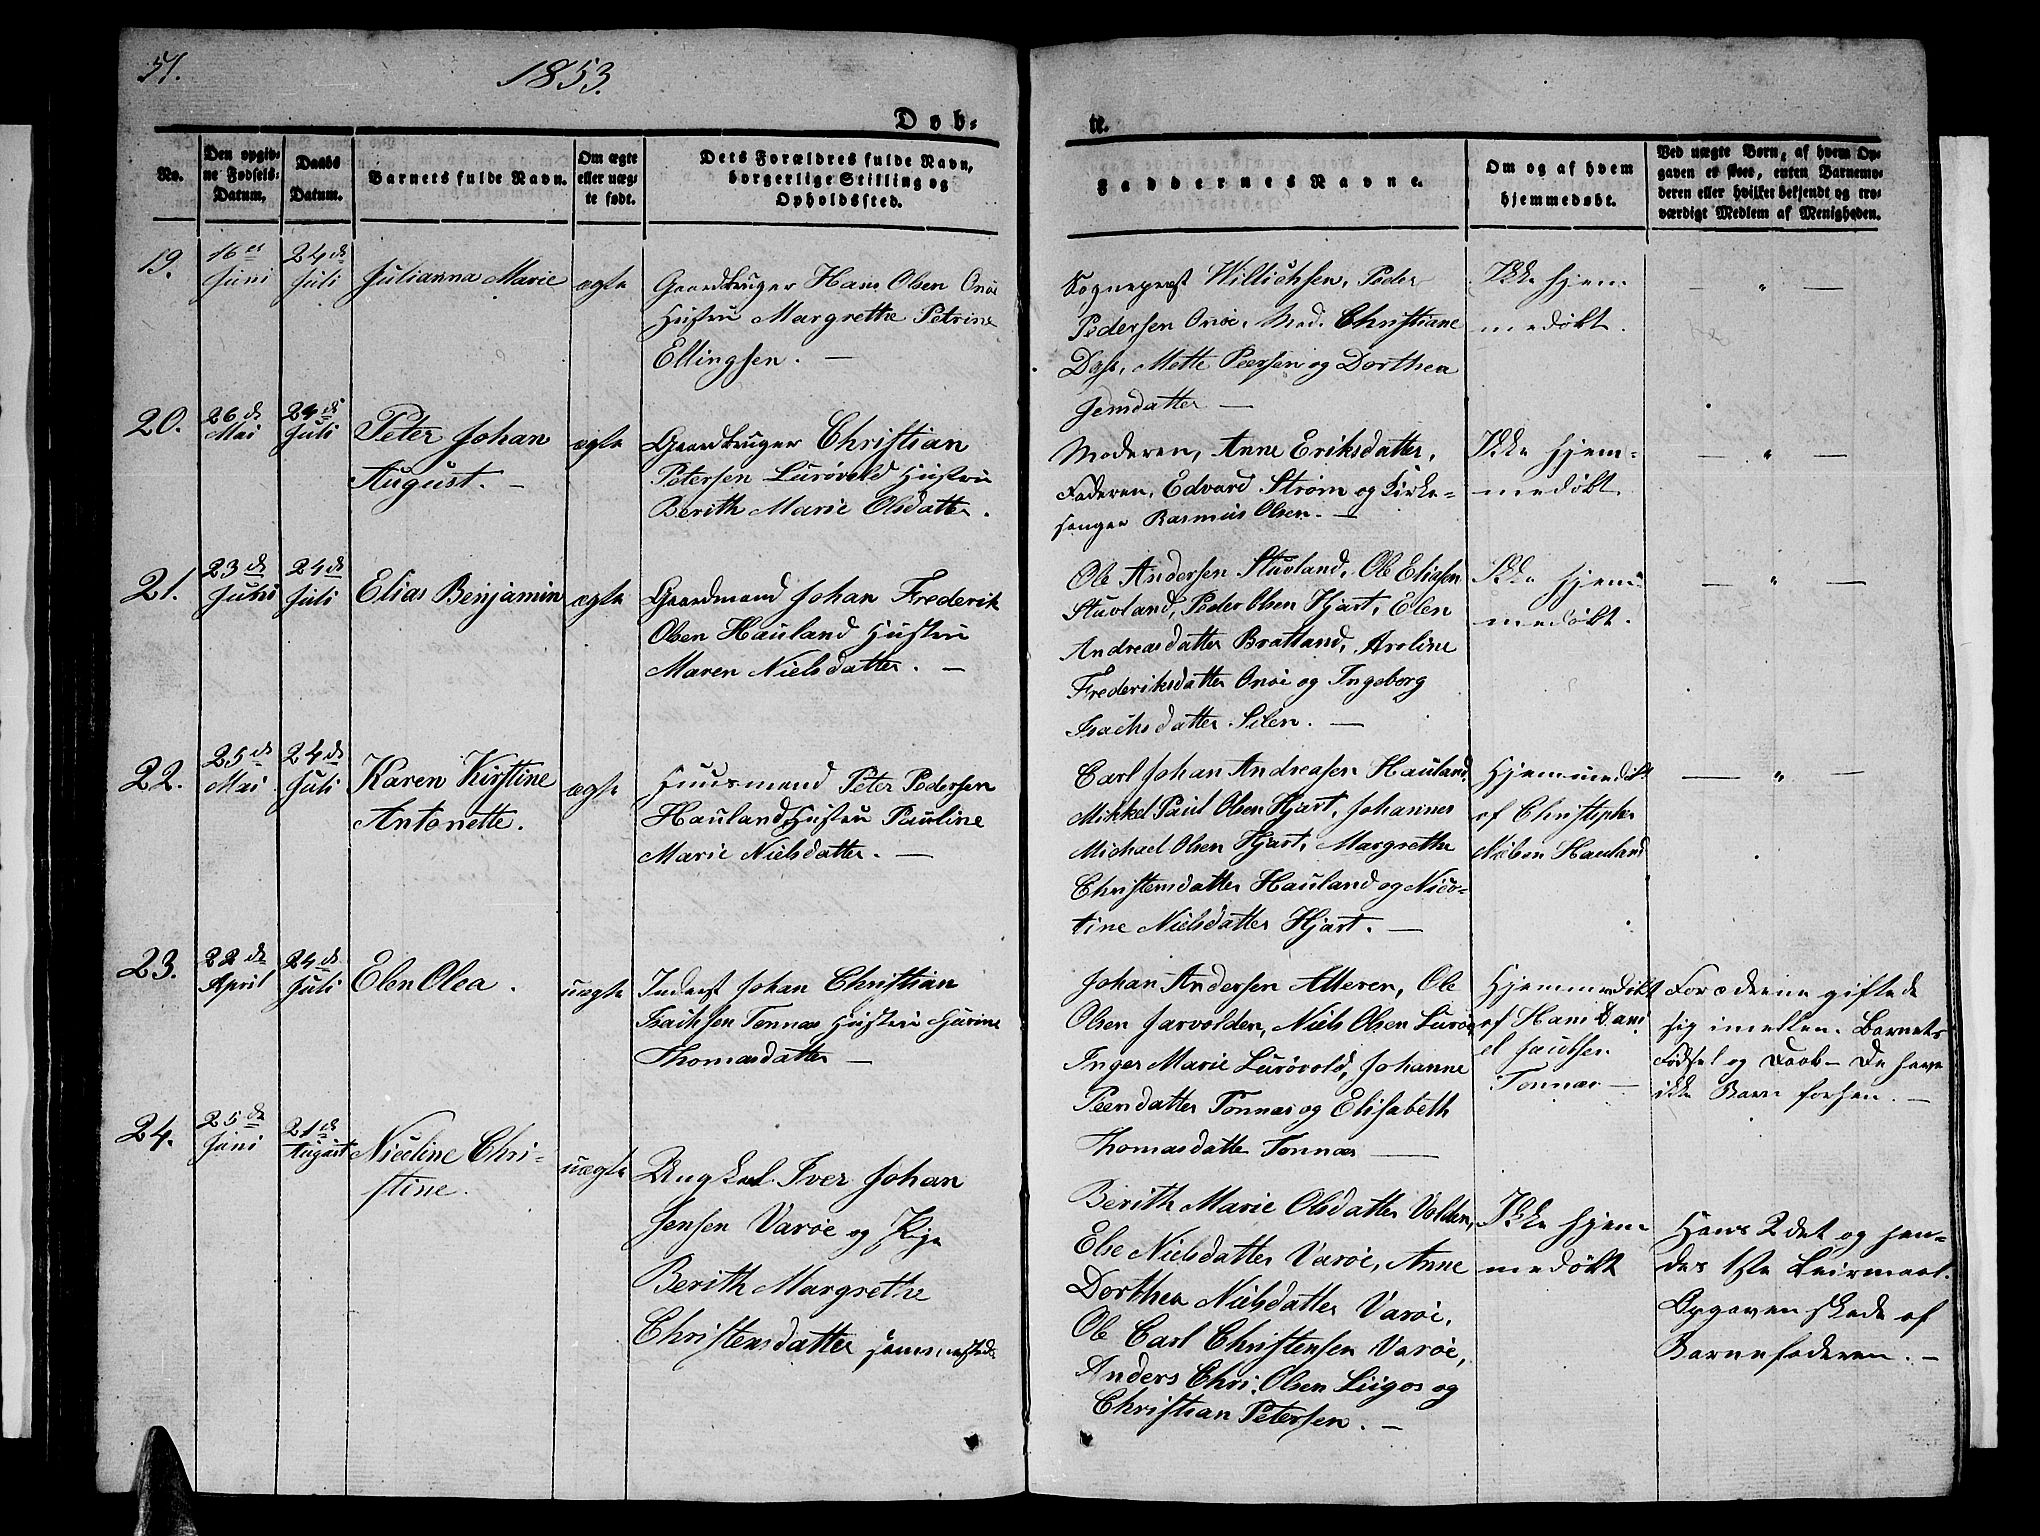 51.
1853.
Døb-
te.
No.
Den opgiv-
ne Fødsels-
Datum.
Daabs
Datum.
Barnets fulde Navn.
Om ægte
eller uæg-
te født.
Dets Forældres fulde Navn,
borgerlige Stilling og
Opholdssted.
Faddernes Navne.
Om og af hvem
hjemmedøbt.
Ved uægte Børn, af hvem Op-
gaven er skeet, enten Barnemo-
deren eller hvilket bekjendt og tro-
værdigt Medlem af Menigheden.
19.
16de
Juni
24de
Juli
Julianna Marie
ægte
Gaardbruger Hans Olsen Onøe
Hustru Margrethe Petrine
Ellingsen. —
Sognepræst Willichsen, Peder
Pedersen Onøe, Mad. Christiane
Dass, Mette Peersen og Dorthea
Jensdatter —
Ikke hjem-
medøbt.
— " —
20.
26de
Mai
24de
Juli
Peter Johan
August. —
ægte
Gaardbruger Christian
Petersen Lurøvold Hustru
Berith Marie Olsdatter.
Moderen, Anne Eriksdatter,
Faderen, Edvard Strøm og Kirke-
sanger Rasmus Olsen. —
Ikke hjem-
medøbt.
— " —
21.
23de
Juni
24de
Juli
Elias Benjamin
ægte
Gaardmand Johan Frederik
Olsen Hauland Hustru
Maren Nielsdatter. —
Ole Andersen Stuvland, Ole Eliasen
Stuvland, Peder Olsen Hjart, Elen
Andreasdatter Bratland, Aroline
Frederiksdatter Onøi og Ingeborg
Isachsdatter Silen. —
Ikke hjem-
medøbt.
— " —
22.
25de
Mai
24de
Juli
Karen Kirstine
Antonette.
ægte
Huusmand Peter Pedersen
Hauland Hustru Pauline
Marie Nielsdatter. —
Carl Johan Andreasen Hauland,
Mikkel Paul Olsen Hjart, Johannes
Michael Olsen Hjart, Margrethe
Christensdatter Hauland og Nico-
tine Nielsdatter Hjart. —
Hjemmedøbt
af Christopher
Nilsen Hauland
— " —
23.
22de
April
24de
Juli
Elen Olea.
uægte
Inderst Johan Christian
Isachsen Tonnæs Hustru
Thomasdatter —
Johan Andersen Alteren, Ole
Olsen Jarvolden, Niels Olsen Lurøe,
Inger Marie Lurøvold, Johanne
Peersdatter Tonnæs og Elisabeth
Thomasdatter Tonnæs —
Hjemmedøbt
af Hans Dani-
el Jacobsen
Tonnæs —
Forældrene giftede
sig imellem Barnets
Fødsel og Daab — De have
ikke Barn forhen. —
24.
25de
Juni
21de
August
Nicoline Chri-
stine.
uægte
Ungkarl Iver Johan
Jensen Varøe og Pige
Berith Margrethe
Christensdatter sammesteds
Berith Marie Olsdatter Volden,
Else Nielsdatter Varøe, Anne
Dorthea Nielsdatter Varøe,
Ole Carl Christensen Varøe,
Anders Chri. Olsen Liigos og
Christian Petersen. —
Ikke hjem-
medøbt
Hans 2det og hen-
des 1ste Leiermaal.
Opgaven skede af
Barnefaderen. —